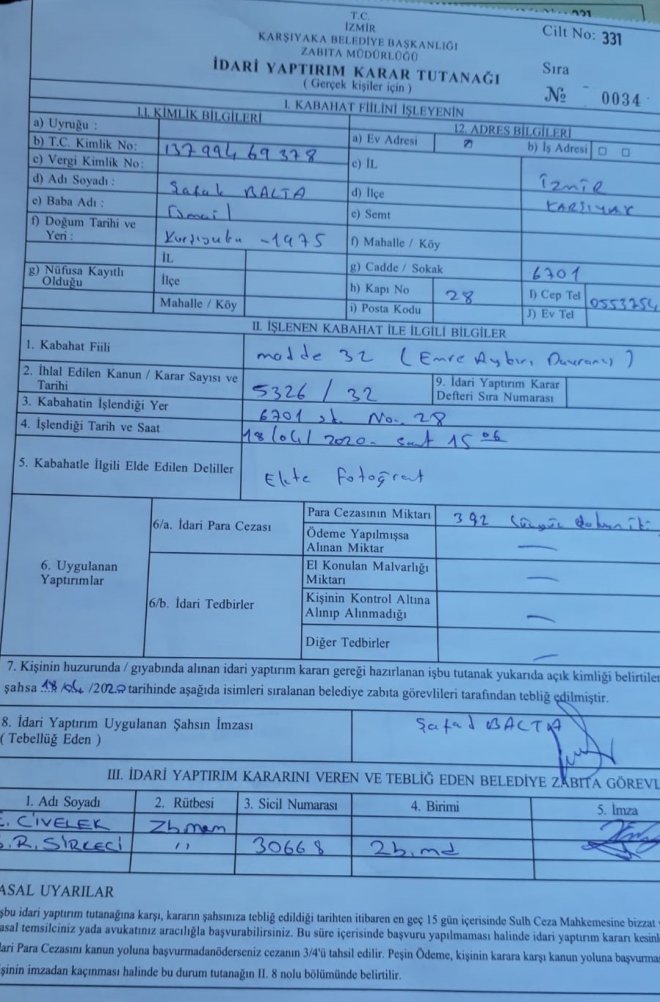 T.C.
İZMİR
KARŞIYAKA BELEDİYE BAŞKANLIĞI
ZABITA MÜDÜRLÜĞÜ
İDARİ YAPTIRIM KARAR TUTANAĞI
( Gerçek kişiler için )
Cilt No: 331
Sıra
№ 0034
I. KABAHAT FİİLİNİ İŞLEYENİN
1.1. KİMLİK BİLGİLERİ
12. ADRES BİLGİLERİ
a) Uyruğu :
b) T.C. Kimlik No: 13799469378
c) Vergi Kimlik No:
d) Adı Soyadı : Şafak BALTA
e) Baba Adı : İsmail
f) Doğum Tarihi ve Yeri : Karşıyaka -1975
g) Nüfusa Kayıtlı Olduğu
İL
İlçe
Mahalle / Köy
a) Ev Adresi
b) İş Adresi
c) İL İZMİR
d) İlçe KARŞIYAK
e) Semt
f) Mahalle / Köy
g) Cadde / Sokak 6701
h) Kapı No 28
I) Cep Tel 0553754
i) Posta Kodu
J) Ev Tel
II. İŞLENEN KABAHAT İLE İLGİLİ BİLGİLER
1. Kabahat Fiili madde 32 ( Emre Aykırı Davranış )
2. İhlal Edilen Kanun / Karar Sayısı ve Tarihi 5326 / 32
9. İdari Yaptırım Karar Defteri Sıra Numarası
3. Kabahatin İşlendiği Yer 6701 sk. No. 28
4. İşlendiği Tarih ve Saat 18/04/2020 - saat 15 06
5. Kabahatle İlgili Elde Edilen Deliller Ekte Fotoğraf
6. Uygulanan Yaptırımlar
6/a. İdari Para Cezası
Para Cezasının Miktarı 392
Ödeme Yapılmışsa Alınan Miktar —
6/b. İdari Tedbirler
El Konulan Malvarlığı Miktarı —
Kişinin Kontrol Altına Alınıp Alınmadığı —
Diğer Tedbirler —
7. Kişinin huzurunda / gıyabında alınan idari yaptırım kararı gereği hazırlanan işbu tutanak yukarıda açık kimliği belirtilen
şahsa 18/04/2020 tarihinde aşağıda isimleri sıralanan belediye zabıta görevlileri tarafından tebliğ edilmiştir.
8. İdari Yaptırım Uygulanan Şahsın İmzası
( Tebellüğ Eden )
Şafak BALTA
III. İDARİ YAPTIRIM KARARINI VEREN VE TEBLİĞ EDEN BELEDİYE ZABITA GÖREVL
1. Adı Soyadı 2. Rütbesi 3. Sicil Numarası 4. Birimi 5. İmza
CİVELEK Zb.mem
R. SİRKECİ " 30668 Zb.md
ASAL UYARILAR
şbu idari yaptırım tutanağına karşı, kararın şahsınıza tebliğ edildiği tarihten itibaren en geç 15 gün içerisinde Sulh Ceza Mahkemesine bizzat
asal temsilciniz yada avukatınız aracılığla başvurabilirsiniz. Bu süre içerisinde başvuru yapılmaması halinde idari yaptırım kararı kesinl
dari Para Cezasını kanun yoluna başvurmadanöderseniz cezanın 3/4'ü tahsil edilir. Peşin Ödeme, kişinin karara karşı kanun yoluna başvurma
işinin imzadan kaçınması halinde bu durum tutanağın II. 8 nolu bölümünde belirtilir.